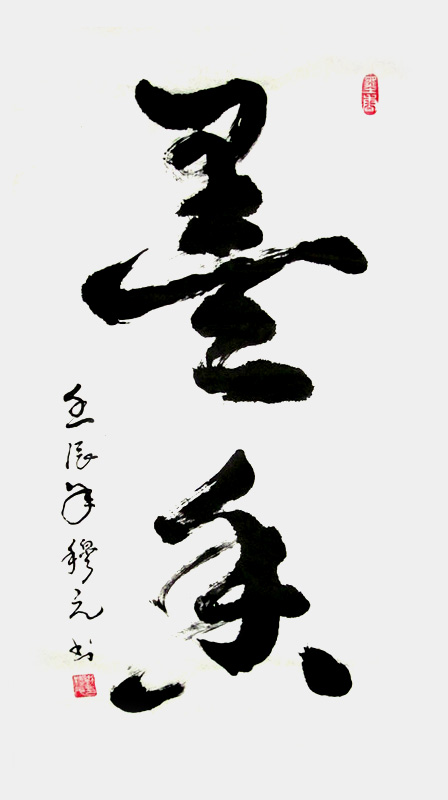 墨香
壬辰年穆元书